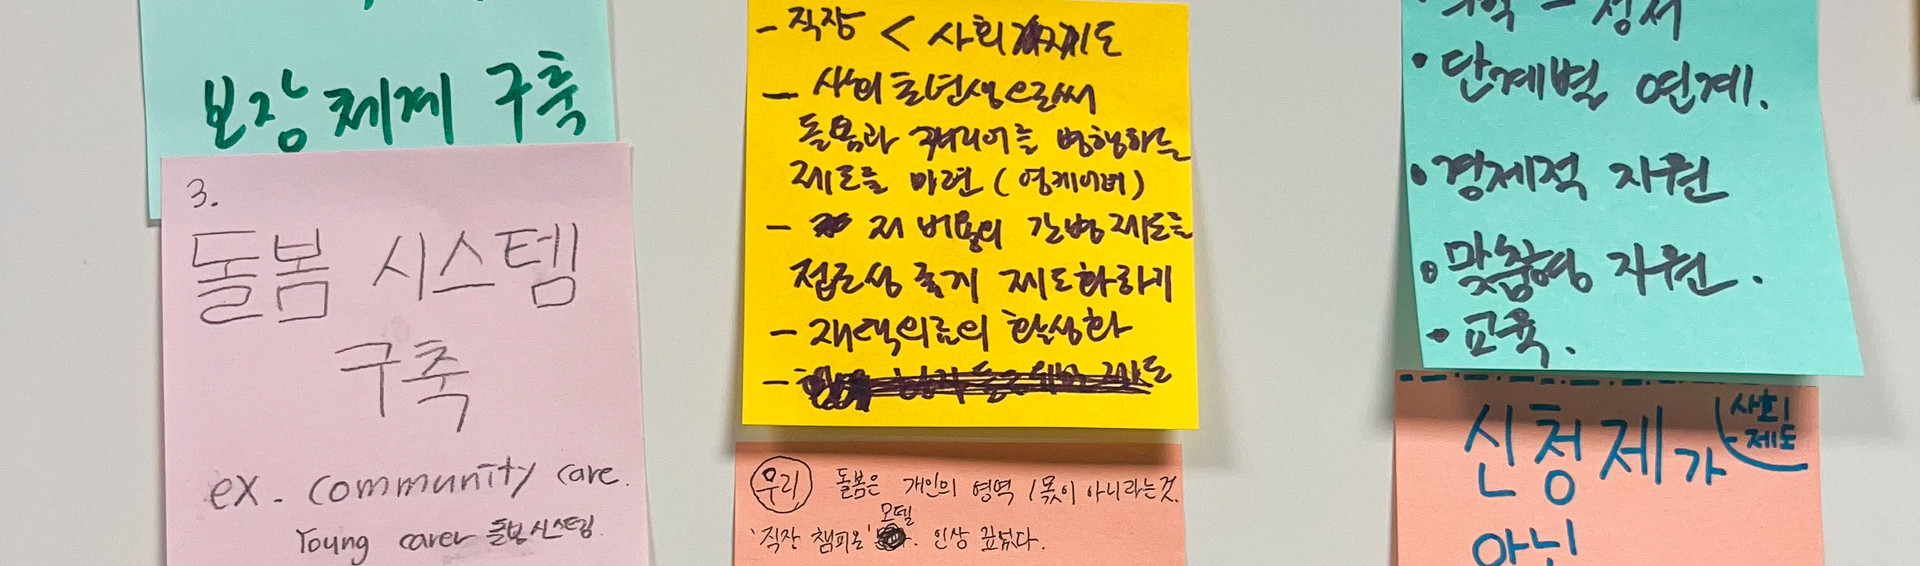 보장체계 구축
3.
돌봄 시스템
구축
ex. community care.
Young carer 돌봄시스템.
- 직장 < 사회 제도
- 사회초년생으로써
돌봄과 커리어를 병행하는
제도를 마련 (영케어러)
- 저 비용의 간병제도를
접근성 좋게 제도화하기
- 재택의료의 활성화
우리 돌봄은 개인의 영역/몫이 아니라는것.
'직장 챔피온' 모델. 인상 깊었다.
· 단계별 연계.
· 경제적 자원
· 맞춤형 자원.
· 교육.
신청제가 사회
제도
아닌